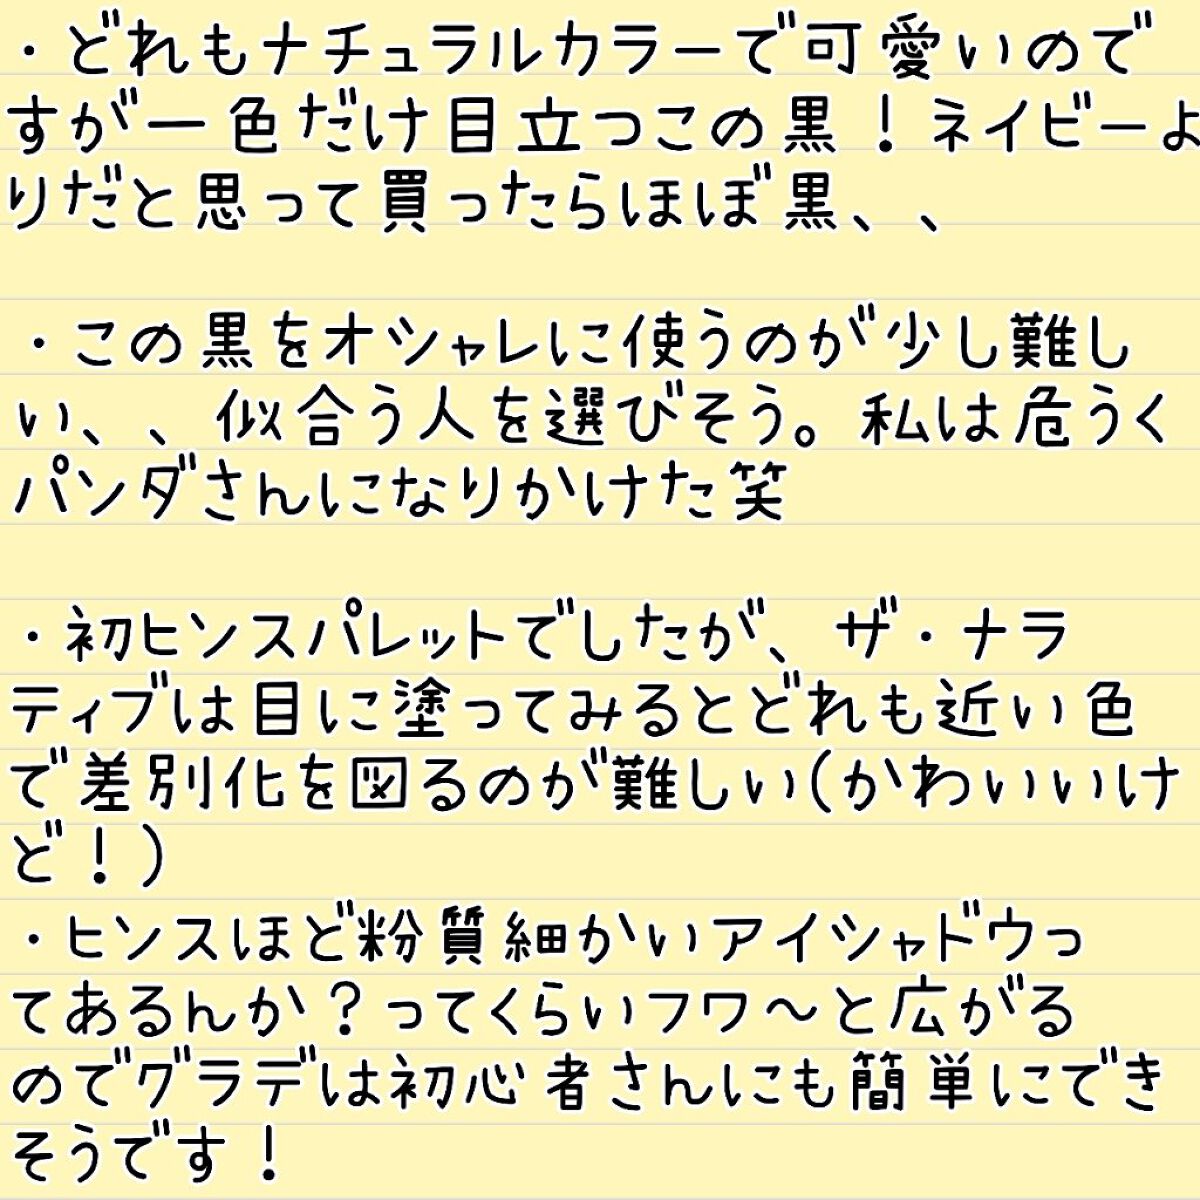 ・どれもナチュラルカラーで可愛いので
すが一色だけ目立つこの黒！ネイビーよ
りだと思って買ったらほぼ黒、、
・この黒をオシャレに使うのが少し難し
い、、似合う人を選びそう。私は危うく
パンダさんになりかけた笑
・初ヒンスパレットでしたが、ザ・ナラ
ティブは目に塗ってみるとどれも近い色
で差別化を図るのが難しい(かわいいけ
ど！)
・ヒンスほど粉質細かいアイシャドウっ
てあるんか？ってくらいフワ〜と広がる
のでグラデは初心者さんにも簡単にでき
そうです！